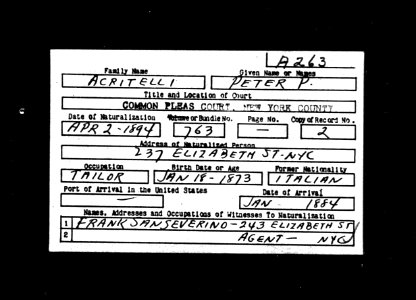 A263
Family Name Given Name or Names
ACRITELLI PETER P.
Title and Location of Court
COMMON PLEAS COURT, NEW YORK COUNTY
Date of Naturalization Volume or Bundle No. Page No. Copy of Record No.
APR 2 - 1894 763 — 2
Address of Naturalized Person
237 ELIZABETH ST. NYC
Occupation Birth Date or Age Former Nationality
TAILOR JAN 18 - 1873 ITALIAN
Port of Arrival in the United States Date of Arrival
— JAN 1884
Names, Addresses and Occupations of Witnesses To Naturalization
1 FRANK SANSEVERINO - 243 ELIZABETH ST
2 AGENT — NYC